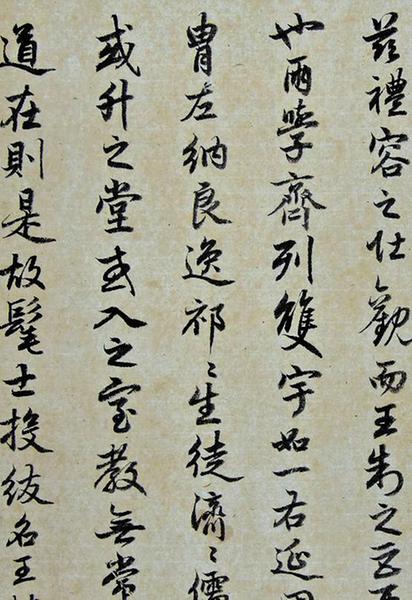 兹禮容之壯觀而王制之巨
也兩學齊列雙宇如一右延
胄左納良逸祁〻生徒濟〻儒
或升之堂或入之室教無常
道在則是故髦士投紱名王